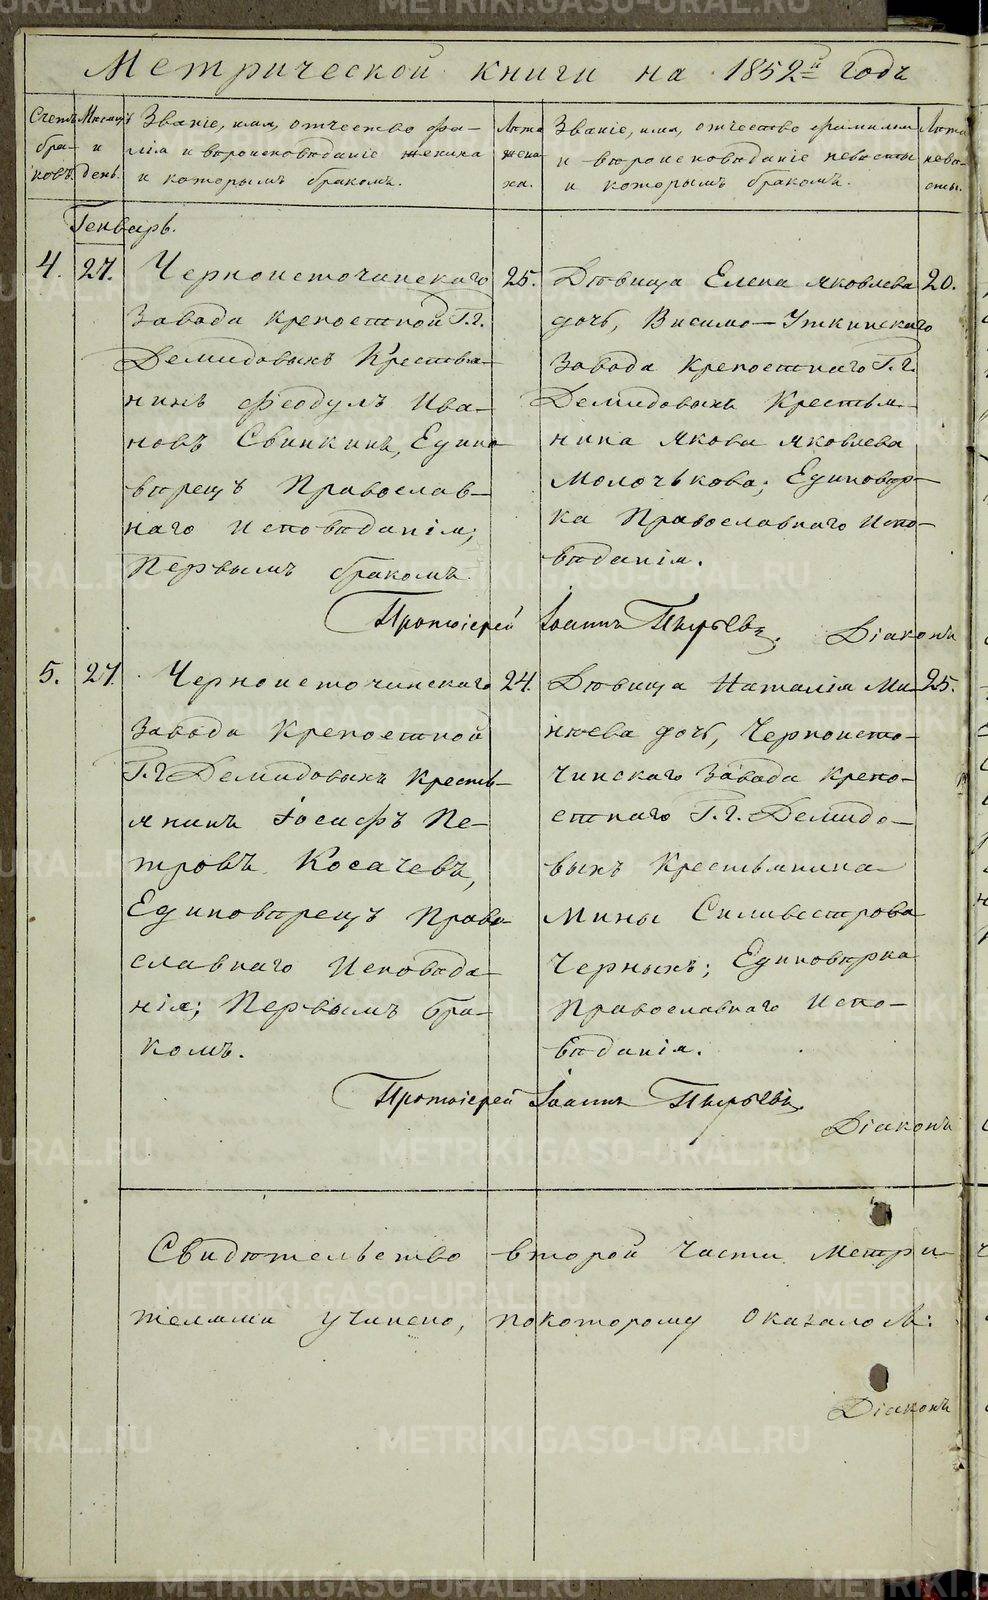 Метрической книги на 1852й годъ
Счетъ браковъ.
Месяцъ и день.
Званіе, имя, отчество фамилія и вѣроисповѣданіе жениха и которымъ бракомъ.
Лѣта жениха.
Званіе, имя, отчество фамилія и вѣроисповѣданіе невѣсты и которымъ бракомъ.
Лѣта невѣсты.
Генварь.
4. 27.
Черноисточинскаго
Завода крепостной Г.г.
Демидовыхъ Крестья-
нинъ Феодулъ Ива-
новъ Свинкинъ, Едино
вѣрецъ Православ-
наго Исповѣданія;
Первымъ бракомъ.
25.
Дѣвица Елена Яковлева
дочь, Висимо-Уткинскаго
Завода Крепостнаго Г.г.
Демидовыхъ Крестья-
нина Якова Яковлева
Молочькова; Единовѣр-
ка Православнаго Испо-
вѣданія.
20.
Протоіерей Іоаннъ Пырьевъ. Діаконъ
5. 27.
Черноисточинскаго
Завода Крепостной
Г.г. Демидовыхъ Кресть-
янинъ Іосифъ Пе-
тровъ Косачевъ,
Единовѣрецъ Право
славнаго Исповѣда-
нія; Первымъ бра-
комъ.
24.
Дѣвица Наталія Ми-
нѣева дочь, Черноисто-
чинскаго Завода Крепо-
стнаго Г.г. Демидо-
выхъ Крестьянина
Мины Силивестрова
Черныхъ; Единовѣрка
Православнаго Испо-
вѣданія.
25.
Протоіерей Іоаннъ Пырьевъ
Діаконъ
Свидѣтельство второй части Метри-
телями учинено, покоторому оказалось:
Діаконъ
METRIKI.GASO-URAL.RU